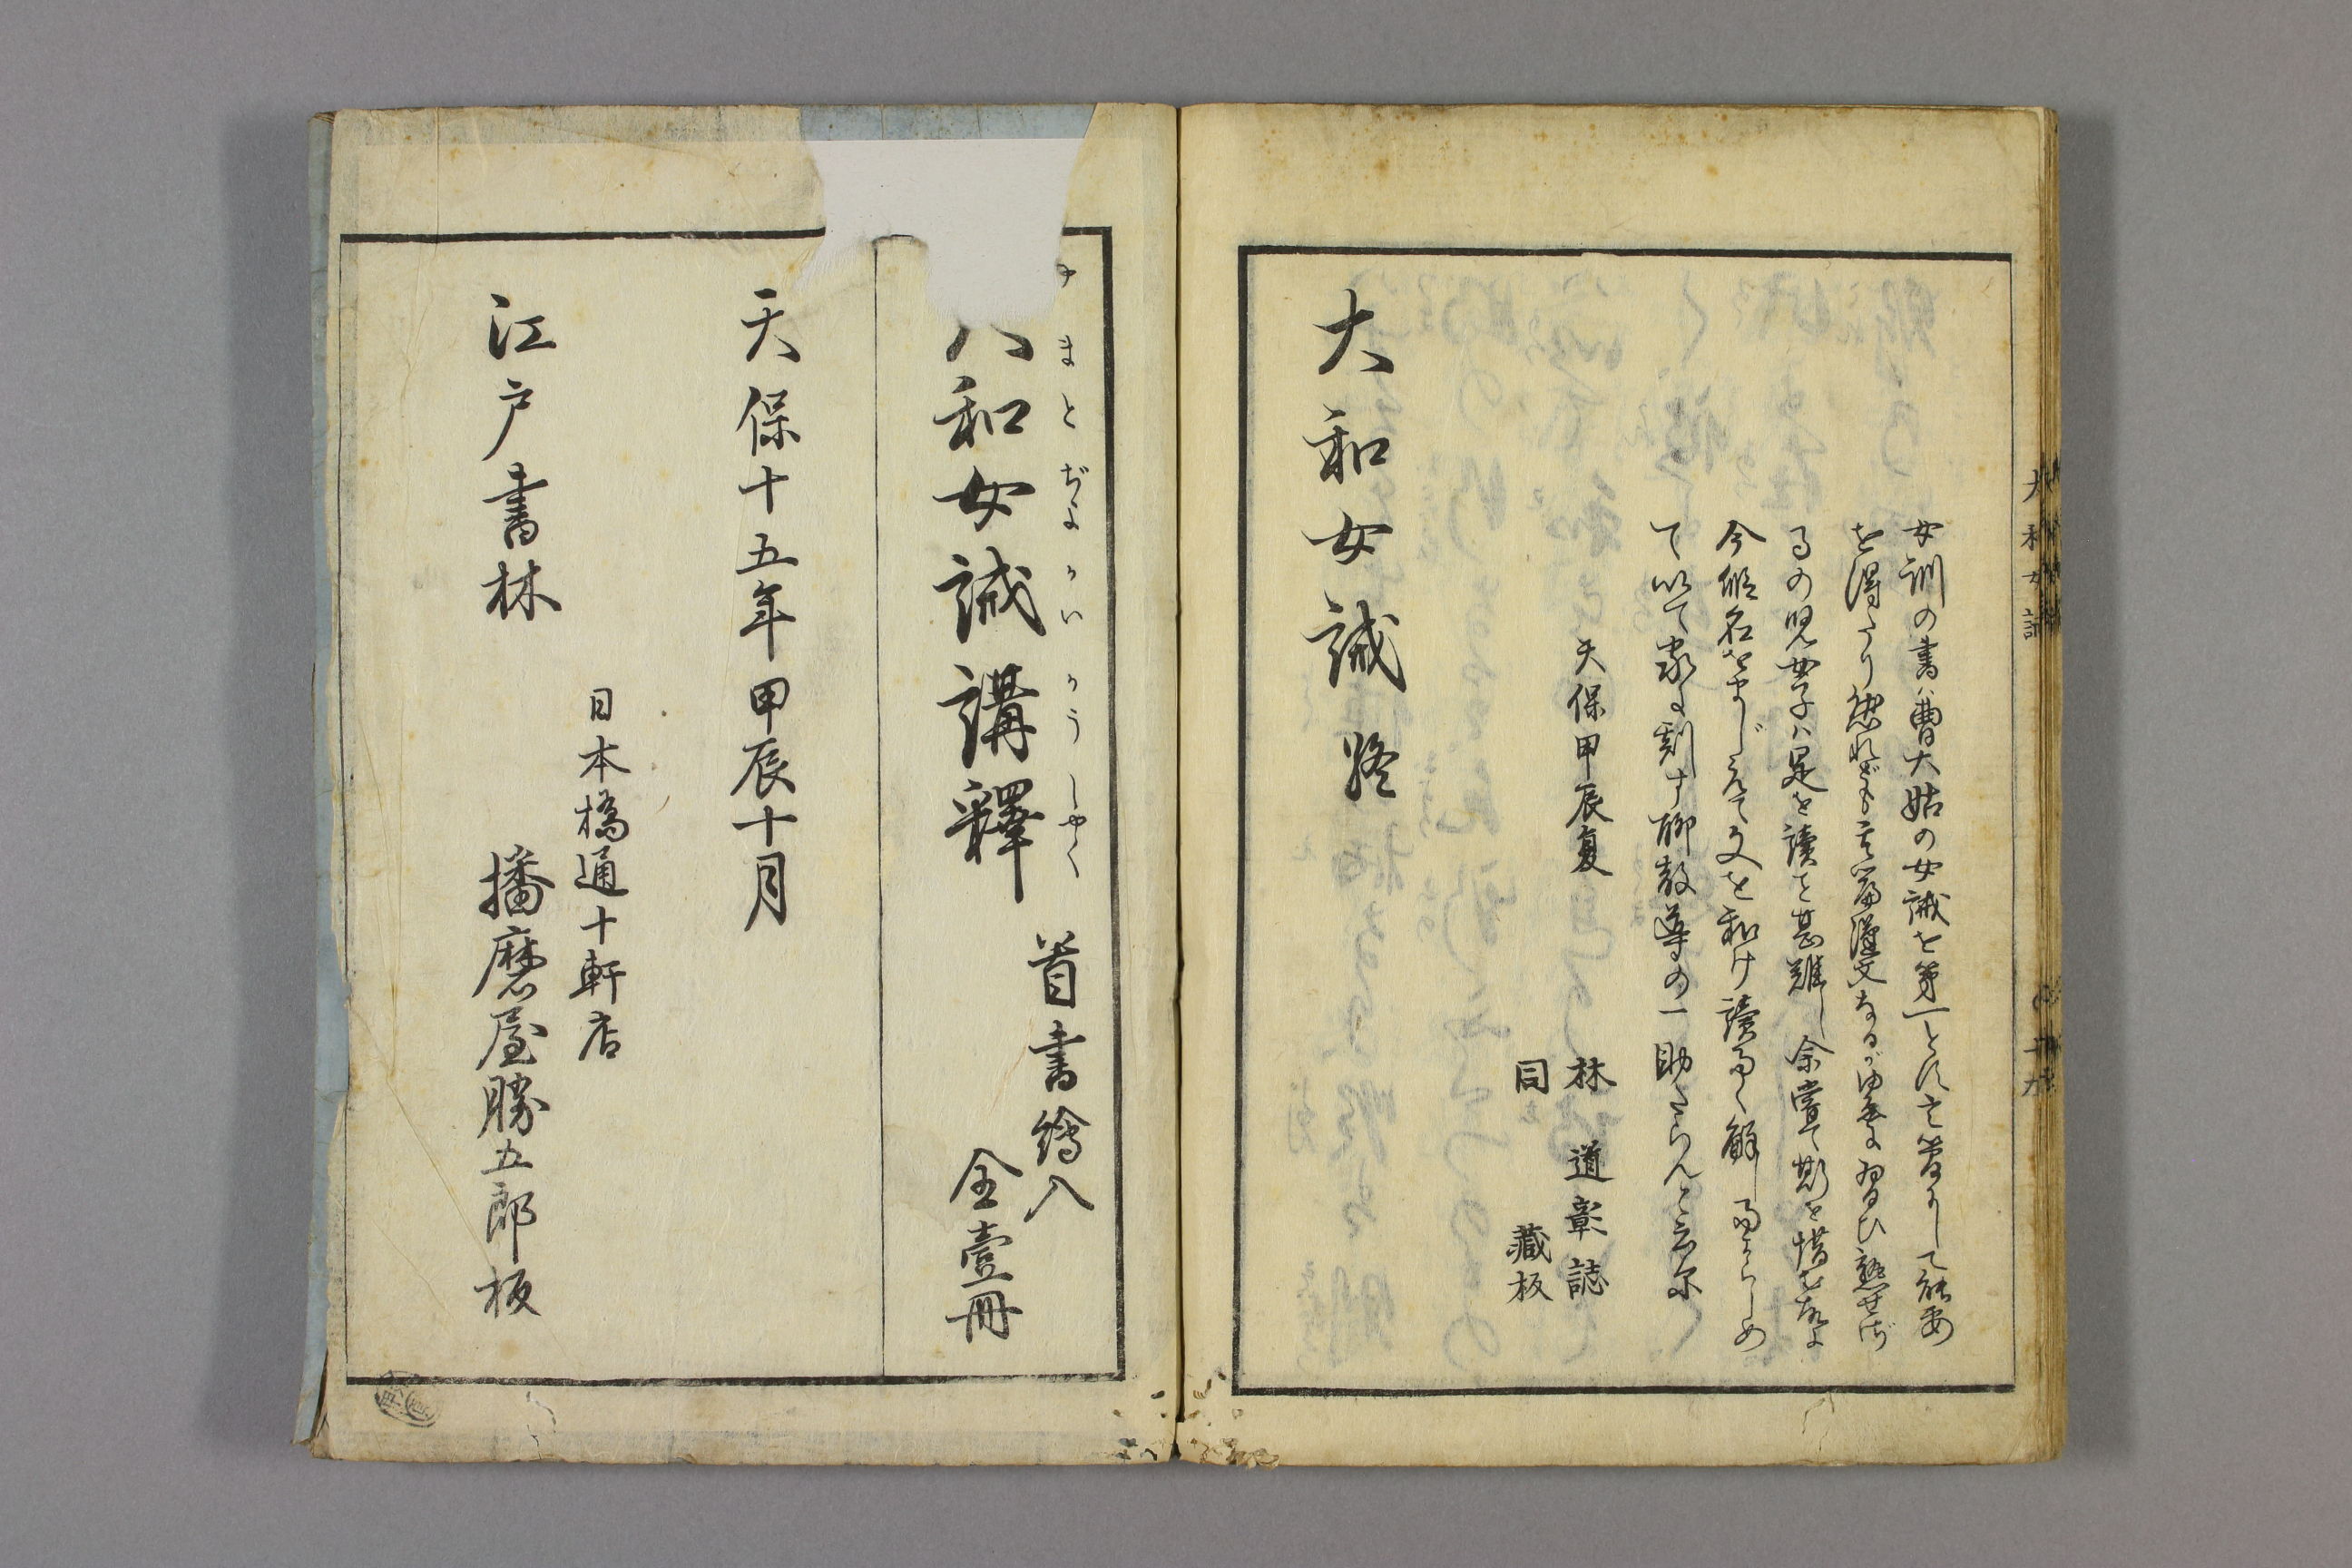 女訓の書ハ曹大姑の女誡を第一とす其簡にして能要
を得たり然れども其篇漢文なるがゆゑに習ひ熟せざ
るの児女子ハ是を讀こと甚難し余嘗て斯を惜む故に
今假名をまじへて文を和け讀易く解し易からしめ
て以て家に刻す聊教導の一助たらんと云爾
天保甲辰夏
林 道彰誌
同 藏板
大和女誡終
大和女誡
やまとぢよかいかうしやく
大和女誡講釋
首書繪入
全壹冊
天保十五年甲辰十月
日本橋通十軒店
江戸書林 播磨屋勝五郎板